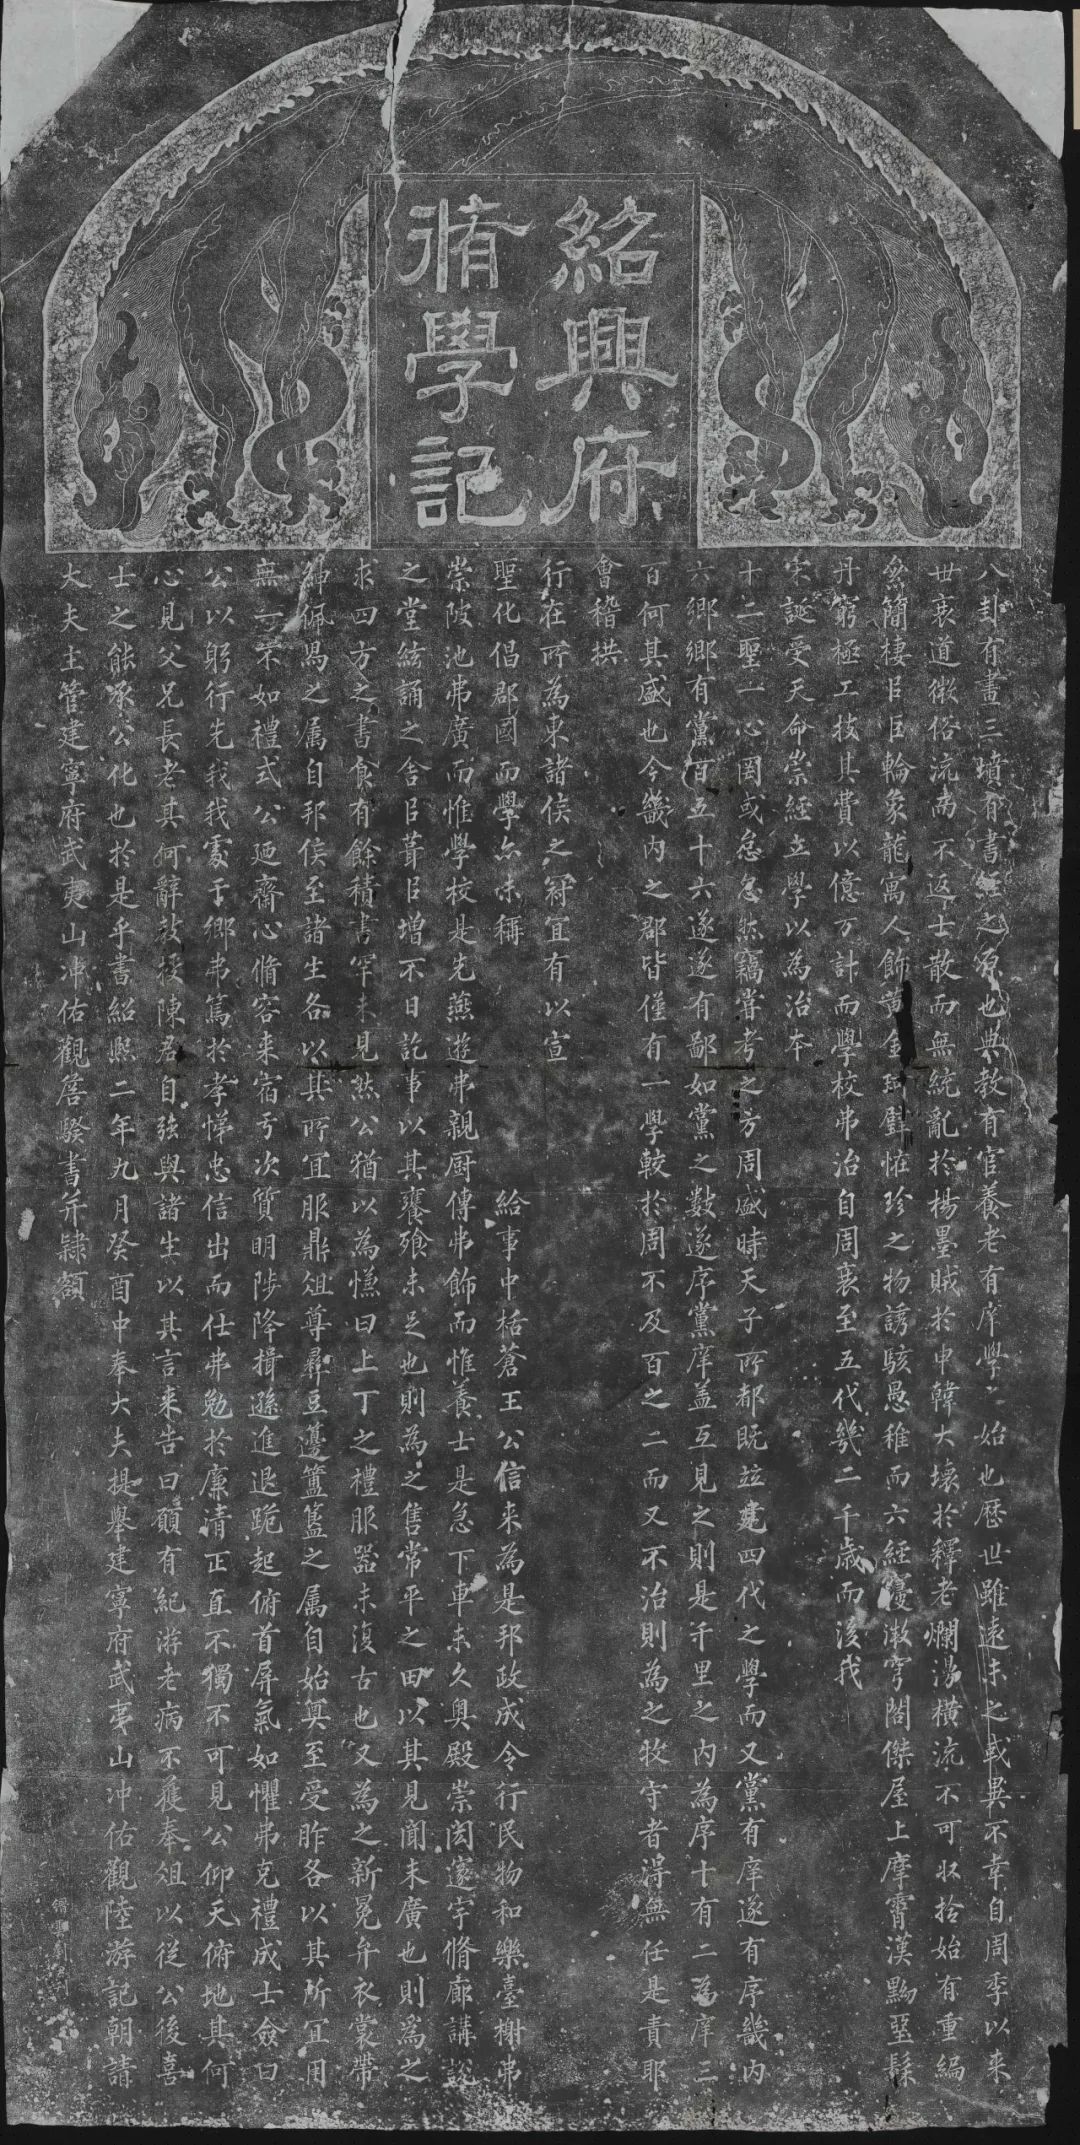 紹興府
脩學記
八卦有畫三墳有書經之原也典教有官養老有庠學之始也歷世雖遠未之或異不幸自周季以来
世衰道微俗流而不返士散而無統亂於楊墨賊於申韓大壞於釋老爛漫橫流不可收拾始有重編
累簡棲臣巨輪象龍寓人飾黃金珠璧怪珍之物誘駭愚稚而六經寖微穹閣傑屋上摩霄漢黝堊髹
丹窮極工技其費以億万計而學校弗治自周衰至五代幾二千歲而後我
宋誕受天命崇經立學以為治本
十二聖一心罔或怠忽然竊嘗考之方周盛時天子所都既並建四代之學而又黨有庠遂有序畿內
六鄉鄉有黨百五十六遂遂有鄙如黨之數遂序黨庠盖互見之則是千里之內為序十有二為庠三
百何其盛也今畿內之郡皆僅有一學較於周不及百之二而又不治則為之牧守者得無任是責耶
會稽拱
行在所為東諸侯之冠宜有以宣
聖化倡郡國而學亦未稱
給事中栝蒼王公信来為是邦政成令行民物和樂臺榭弗
崇陂池弗廣而惟學校是先燕遊弗親厨傳弗飾而惟養士是急下車未久奥殿崇閎邃宇脩廊講說
之堂絃誦之舍以葺以增不日訖事以其饔飧未足也則為之售常平之田以其見聞未廣也則為之
求四方之書食有餘積書罕未見然公猶以為慊曰上丁之禮服器未復古也又為之新冕弁衣裳帶
紳佩舄之属自邦侯至諸生各以其所宜服鼎俎尊彝豆籩簠簋之属自始奠至受胙各以其所宜用
無一不如禮式公廼齋心脩容来宿于次質明陟降揖遜進退跪起俯首屏氣如懼弗克禮成士僉曰
公以躬行先我我處于鄉弗篤於孝悌忠信出而仕弗勉於廉清正直不獨不可見公仰天俯地其何
心見父兄長老其何辭教授陳君自強與諸生以其言来告曰願有紀游老病不獲奉俎以從公後喜
士之能承公化也於是乎書紹熙二年九月癸酉中奉大夫提舉建寧府武夷山冲佑觀陸游記朝請
大夫主管建寧府武夷山冲佑觀詹騤書并隸額